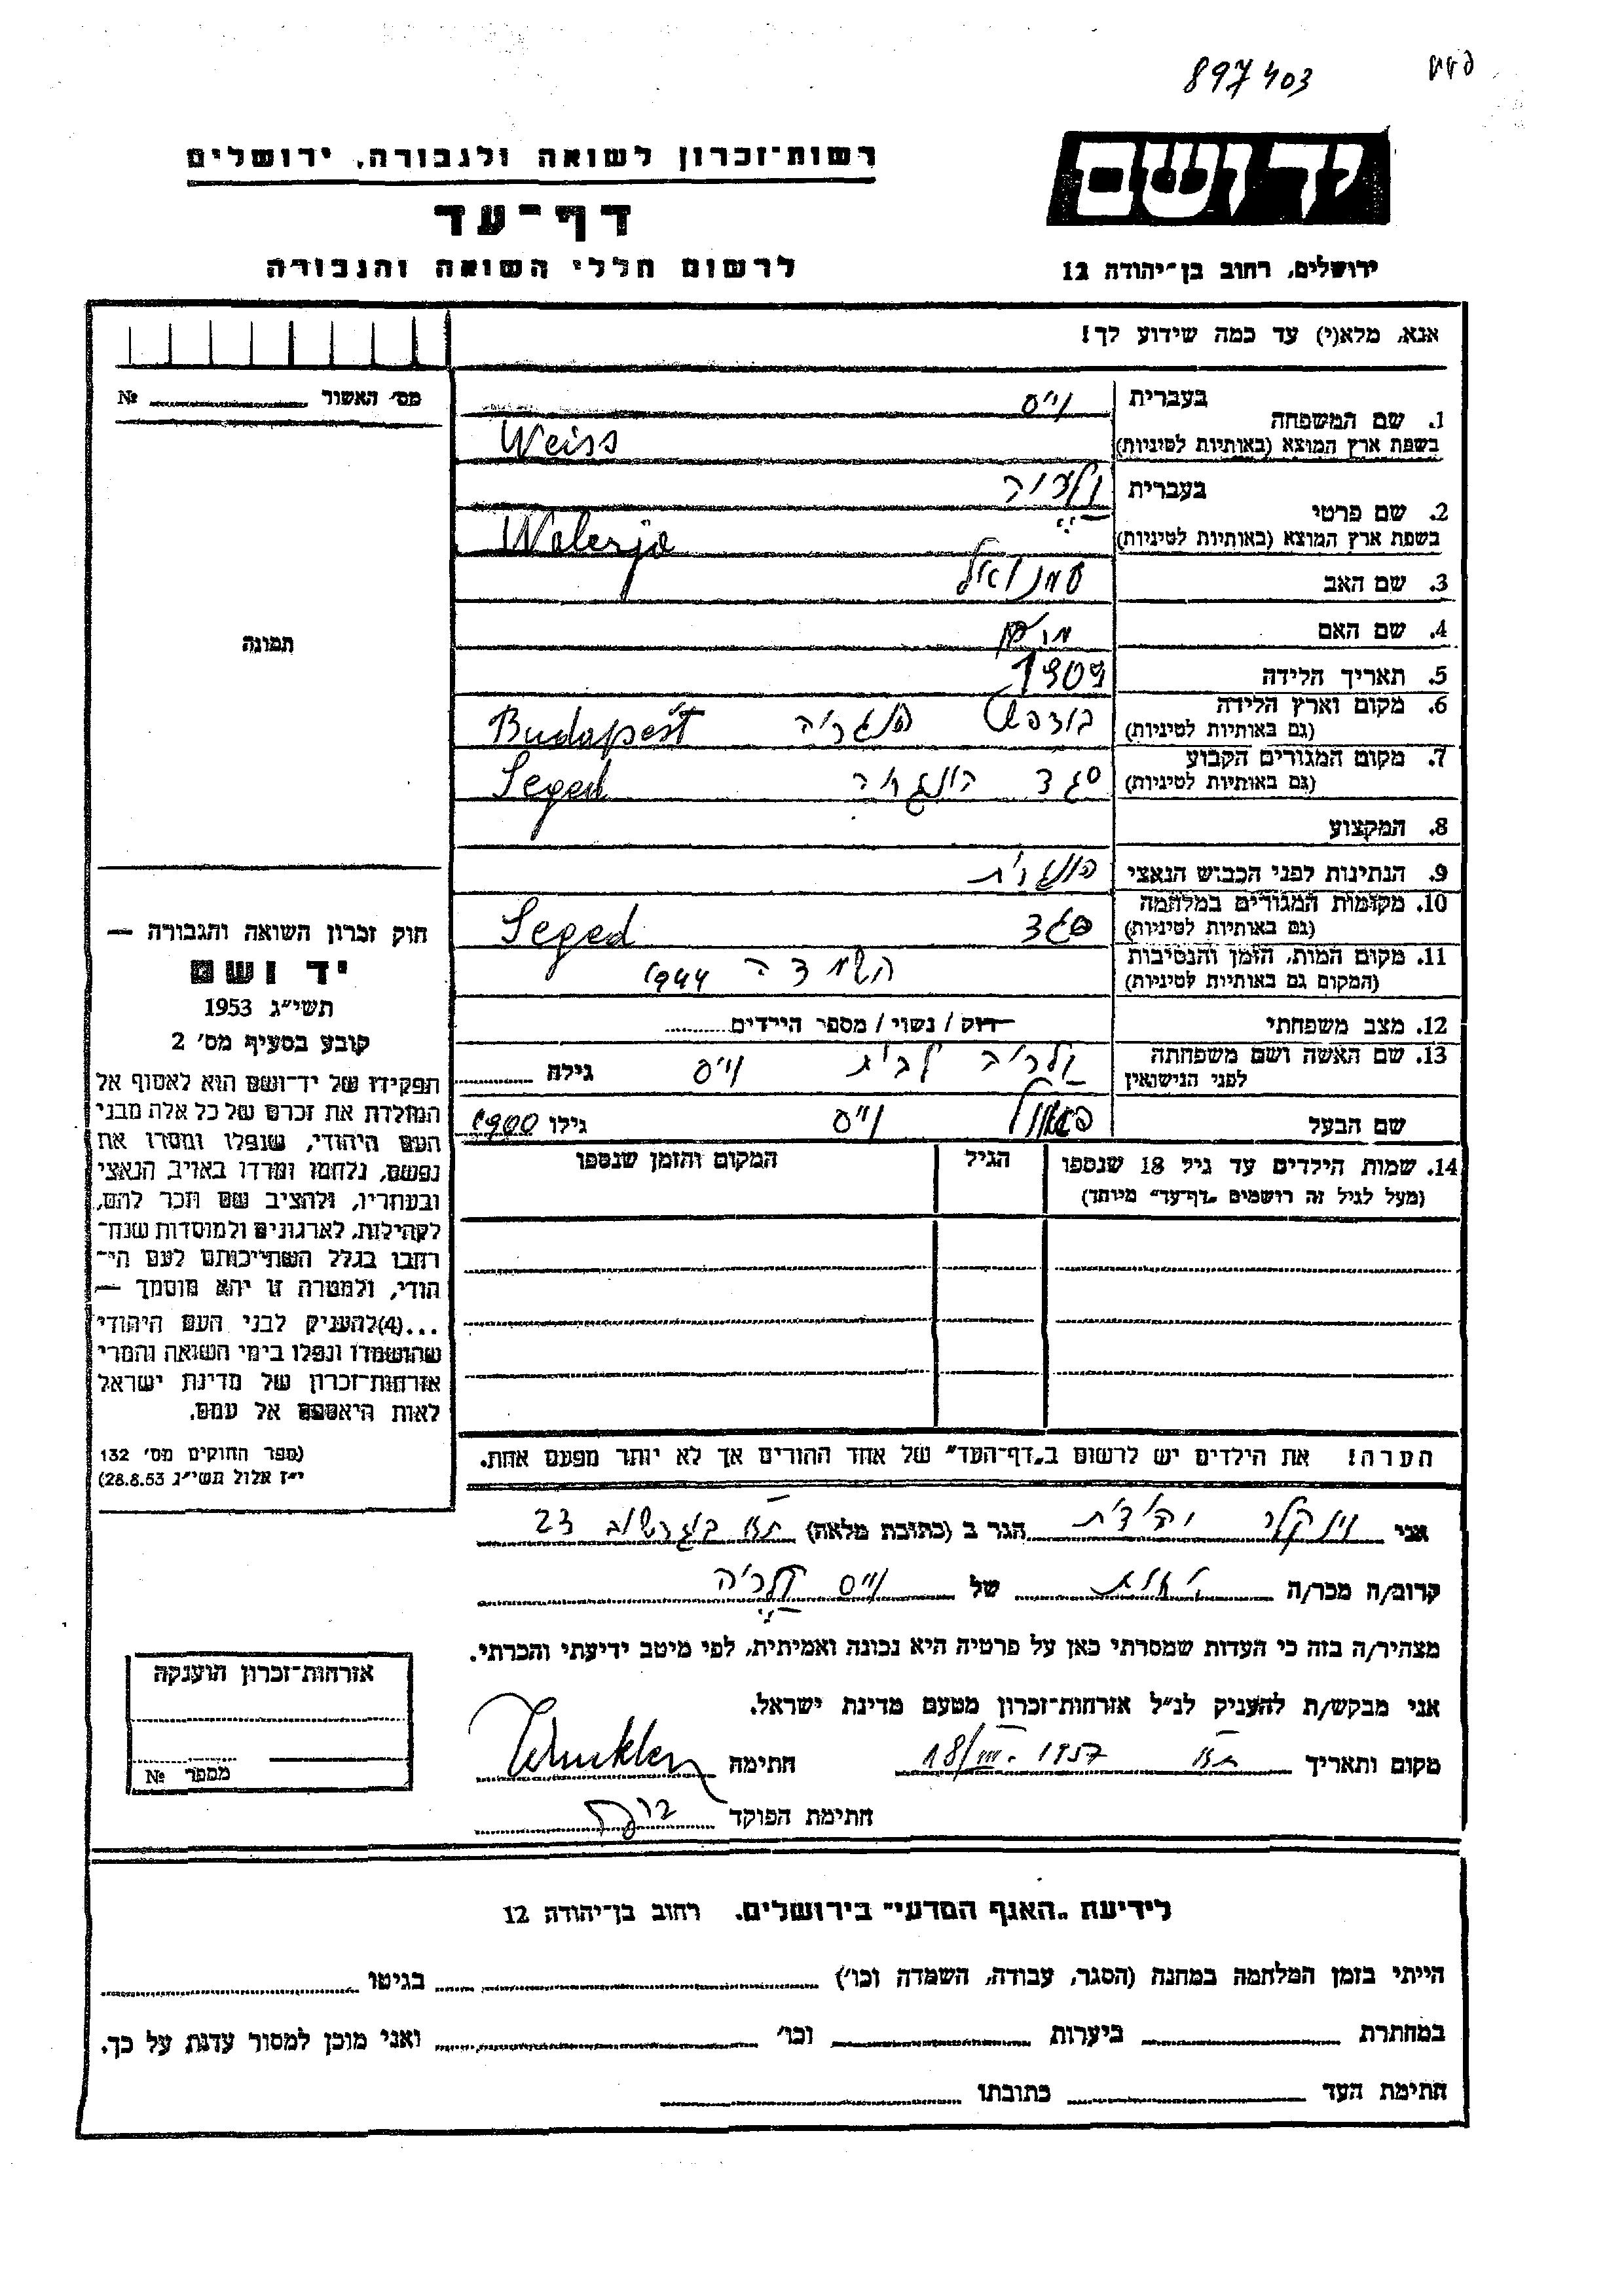 897403
רשות־זכרון לשואה ולגבורה, ירושלים
יד ושם
דף־עד
לרשום חללי השואה והגבורה
ירושלים, רחוב בן־יהודה 12
אנא, מלא(י) עד כמה שידוע לך!
מס׳ האשור № 
1. שם המשפחה
בעברית וייס
בשפת ארץ המוצא (באותיות לטיניות) Weiss
2. שם פרטי
בעברית
בשפת ארץ המוצא (באותיות לטיניות) Walerja
3. שם האב עמנואל
4. שם האם
תמונה
5. תאריך הלידה 1909
6. מקום וארץ הלידה בודפשט Budapest
(גם באותיות לטיניות)
7. מקום המגורים הקבוע סגד הונגריה Seged
(גם באותיות לטיניות)
8. המקצוע
9. הנתינות לפני הכבוש הנאצי הונגרית
10. מקומות המגורים במלחמה סגד Seged
(גם באותיות לטיניות)
11. מקום המות, הזמן והנסיבות השמדה 1944
(המקום גם באותיות לטיניות)
12. מצב משפחתי רוק / נשוי / מספר הילדים
13. שם האשה ושם משפחתה לבית וייס גילה
לפני הנישואין
שם הבעל וייס גילו 1900
14. שמות הילדים עד גיל 18 שנספו הגיל המקום והזמן שנספו
(מעל לגיל זה רושמים „דף־עד״ מיוחד)
חוק זכרון השואה והגבורה —
יד ושם
תשי״ג 1953
קובע בסעיף מס׳ 2
תפקידו של יד־ושם הוא לאסוף אל
המולדת את זכרם של כל אלה מבני
העם היהודי, שנפלו ומסרו את
נפשם, נלחמו ומרדו באויב הנאצי
ובעוזריו, ולהציב שם וזכר להם,
לקהילות, לארגונים ולמוסדות שנח־
רחבו בגלל השתייכותם לעם הי־
הודי, ולמטרה זו יהא מוסמך —
...(4)להעניק לבני העם היהודי
שהושמדו ונפלו בימי השואה והמרי
אזרחות־זכרון של מדינת ישראל
לאות היאספם אל עמם.
(ספר החוקים מס׳ 132
י״ז אלול תשי״ג 28.8.53)
הערה! את הילדים יש לרשום ב„דף־העד״ של אחד ההורים אך לא יותר מפעם אחת.
אני וינקלר יהודית הגר ב (כתובת מלאה) 23
קרוב/ה מכר/ה של וייס
מצהיר/ה בזה כי העדות שמסרתי כאן על פרטיה היא נכונה ואמיתית, לפי מיטב ידיעתי והכרתי.
אני מבקש/ת להעניק לנ״ל אזרחות־זכרון מטעם מדינת ישראל.
מקום ותאריך 18/III-1957 חתימה Winkler
חתימת הפוקד
אזרחות־זכרון הוענקה
מספר №
לידיעת „האגף המדעי״ בירושלים, רחוב בן־יהודה 12
הייתי בזמן המלחמה במחנה (הסגר, עבודה, השמדה וכו׳) בגיטו
במחתרת ביערות וכו׳ ואני מוכן למסור עדות על כך.
חתימת העד כתובתו